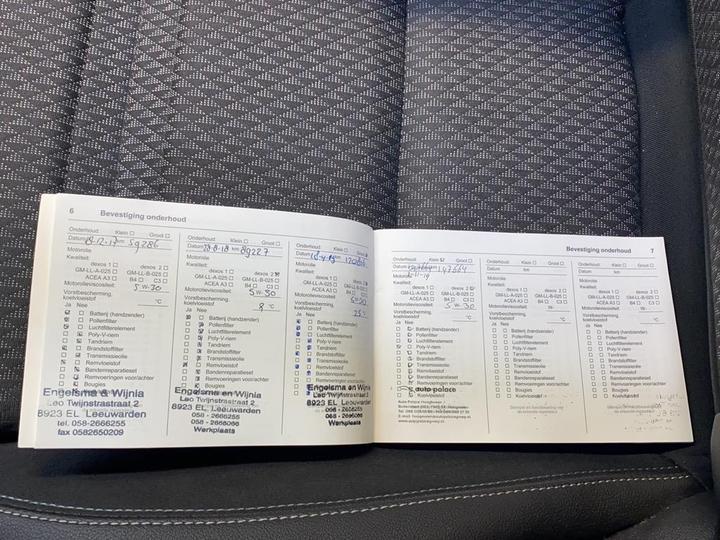 6 Bevestiging onderhoud
Onderhoud: Klein Groot
Datum 18-12-17 km 59286
Motorolie
Kwaliteit:
dexos 1 dexos 2
GM-LL-A-025 GM-LL-B-025
ACEA A3 B4 C3
Motorolieviscositeit: 5W-30
Vorstbescherming,
koelvloeistof °C
Ja Nee
Batterij (handzender)
Pollenfilter
Luchtfilterelement
Poly-V-riem
Tandriem
Brandstoffilter
Transmissieolie
Remvloeistof
Bandenreparatieset
Remvoeringen voor/achter
Bougies
Engelsma en Wijnia
Leo Twijnstrastraat 2
8923 EL Leeuwarden
tel. 058-2666255
fax 0582650209
Onderhoud: Klein Groot
Datum km 89227
Motorolie
Kwaliteit:
dexos 1 dexos 2
GM-LL-A-025 GM-LL-B-025
ACEA A3 B4 C3
Motorolieviscositeit: 5W-30
Vorstbescherming,
koelvloeistof °C
Ja Nee
Batterij (handzender)
Pollenfilter
Luchtfilterelement
Poly-V-riem
Tandriem
Brandstoffilter
Transmissieolie
Remvloeistof
Bandenreparatieset
Remvoeringen voor/achter
Engelsma en Wijnia
Leo Twijnstrastraat 2
8923 EL Leeuwarden
058 - 2666255
Werkplaats
Onderhoud: Klein Groot
Datum
Motorolie
Kwaliteit:
dexos 1 dexos 2
GM-LL-A-025 GM-LL-B-025
ACEA A3 B4 C3
Motorolieviscositeit:
Vorstbescherming,
koelvloeistof °C
Ja Nee
Batterij (handzender)
Pollenfilter
Luchtfilterelement
Poly-V-riem
Tandriem
Brandstoffilter
Transmissieolie
Remvloeistof
Bandenreparatieset
Remvoeringen voor/achter
Engelsma en Wijnia
Leo Twijnstrastraat 2
8923 EL Leeuwarden
058 - 2666255
Werkplaats
Bevestiging onderhoud 7
Onderhoud: Klein Groot
Datum 147664
Motorolie
Kwaliteit:
dexos 1 dexos 2
GM-LL-A-025 GM-LL-B-025
ACEA A3 B4 C3
Motorolieviscositeit: 5W30
Vorstbescherming,
koelvloeistof °C
Ja Nee
Batterij (handzender)
Pollenfilter
Luchtfilterelement
Poly-V-riem
Tandriem
Brandstoffilter
Transmissieolie
Remvloeistof
Bandenreparatieset
Remvoeringen voor/achter
auto palace
Koelvloeistof
Onderhoud: Klein Groot
Datum km
Motorolie
Kwaliteit:
dexos 1 dexos 2
GM-LL-A-025 GM-LL-B-025
ACEA A3 B4 C3
Motorolieviscositeit:
Vorstbescherming,
koelvloeistof °C
Ja Nee
Batterij (handzender)
Pollenfilter
Luchtfilterelement
Poly-V-riem
Tandriem
Brandstoffilter
Transmissieolie
Remvloeistof
Bandenreparatieset
Remvoeringen voor/achter
Bougies
Koelvloeistof
Onderhoud: Klein Groot
Datum km
Motorolie
Kwaliteit:
dexos 1 dexos 2
GM-LL-A-025 GM-LL-B-025
ACEA A3 B4 C3
Motorolieviscositeit:
Vorstbescherming,
koelvloeistof °C
Ja Nee
Batterij (handzender)
Pollenfilter
Luchtfilterelement
Poly-V-riem
Tandriem
Brandstoffilter
Transmissieolie
Remvloeistof
Bandenreparatieset
Remvoeringen voor/achter
Bougies
Koelvloeistof